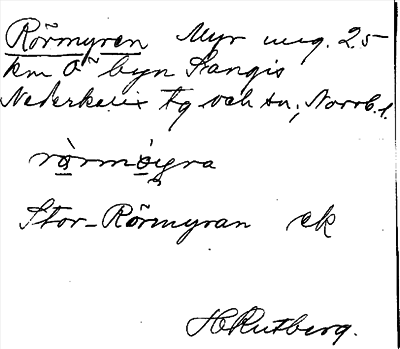 Rörmyren Myr ung. 25
km Ö byn Sangis
Nederkalix tg och sn, Norrb. l.
Stor-Rörmyran ek
H Rutberg.